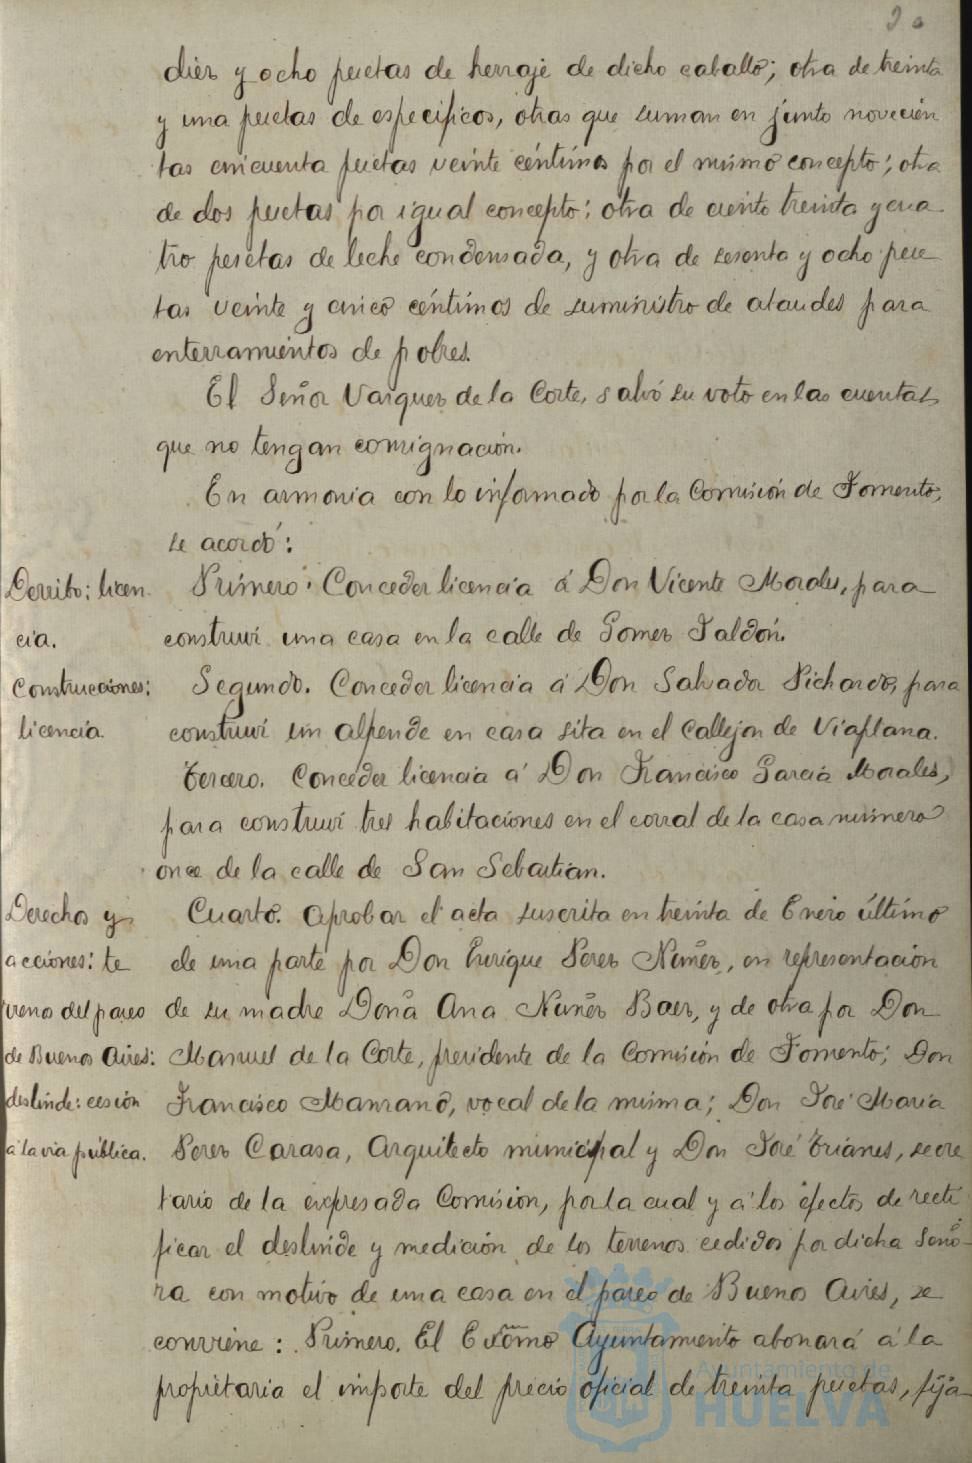 diez y ocho pesetas de herraje de dicho caballo; otra de treinta
y una pesetas de especificos, otras que suman en junto novecien
tas cincuenta pesetas veinte céntimos por el mismo concepto; otra
de dos pesetas por igual concepto; otra de ciento treinta y cua
tro pesetas de leche condensada, y otra de sesenta y ocho pese
tas veinte y cinco céntimos de suministro de ataudes para
enterramientos de pobres.
El Señor Vazquez de la Corte, salvó su voto en las cuentas
que no tengan consignación.
En armonia con lo informado por la Comisión de Fomento,
se acordó:
Derribo; licen
cia.
Primero. Conceder licencia á Don Vicente Morales, para
construir una casa en la calle de Gomez Jaldón.
Construcciones;
licencia.
Segundo. Conceder licencia á Don Salvador Pichardo, para
construir un alpende en casa sita en el callejon de Viaplana.
Tercero. Conceder licencia á Don Francisco Garcia Morales,
para construir tres habitaciones en el corral de la casa número
once de la calle de San Sebastian.
Derechos y
acciones: te
rreno del paseo
de Buenos Aires:
deslinde: cesión
á la via pública.
Cuarto. Aprobar el acta suscrita en treinta de Enero último
de una parte por Don Enrique Perez Nuñez, en representación
de su madre Doña Ana Nuñez Baez, y de otra por Don
Manuel de la Corte, presidente de la Comisión de Fomento; Don
Francisco Manzano, vocal de la misma; Don José Maria
Perez Carasa, Arquitecto municipal y Don José Trianes, secre
tario de la expresada Comision, por la cual y á los efectos de recti
ficar el deslinde y medición de los terrenos cedidos por dicha Seño-
ra con motivo de una casa en el paseo de Buenos Aires, se
conviene: Primero. El Excmo Ayuntamiento abonará á la
propietaria el importe del precio oficial de treinta pesetas, fija-
Ayuntamiento de
HUELVA